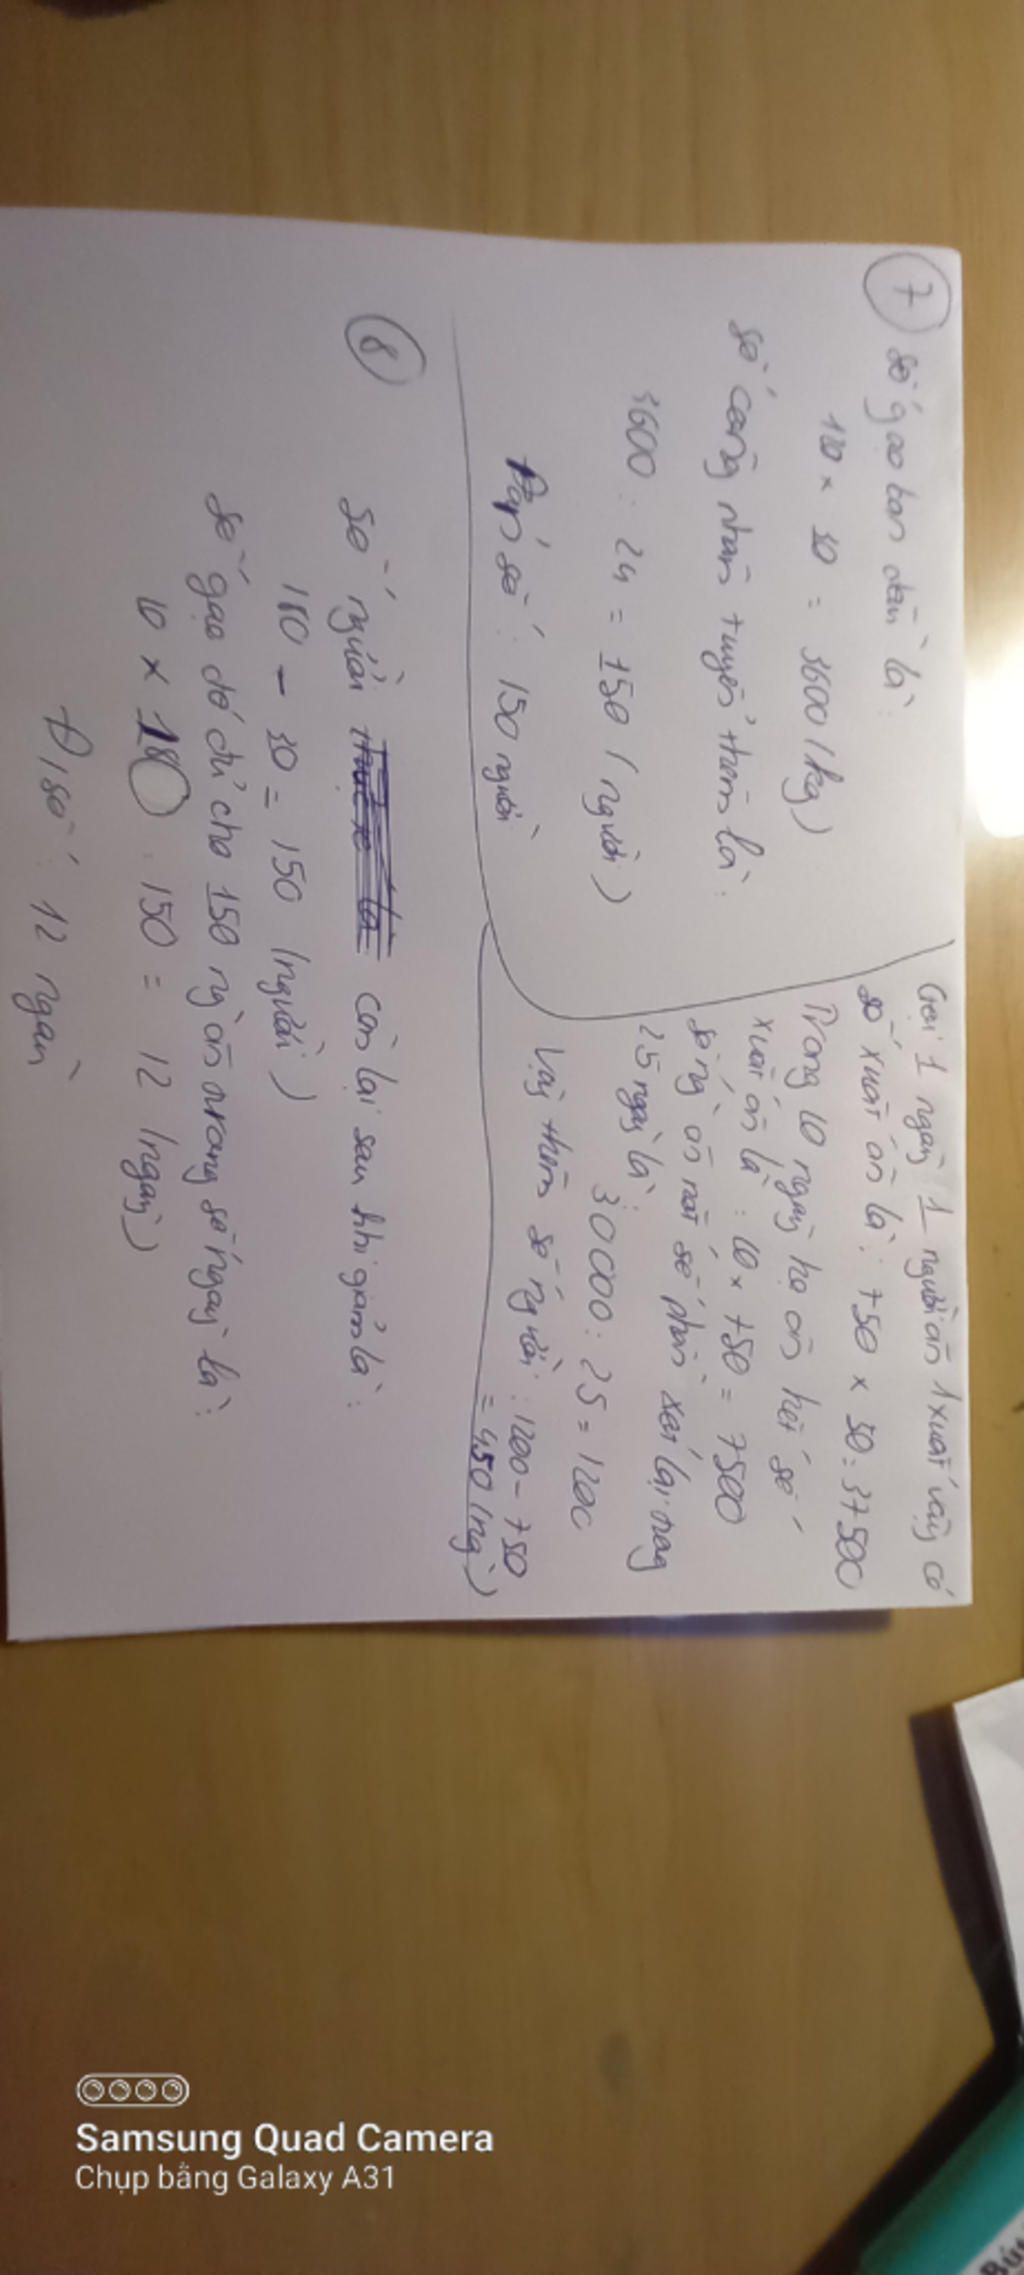 7
số gạo ban đầu là:
120 x 30 = 3600 (kg)
số công nhân tuyển thêm là:
3600 : 24 = 150 (người)
Đáp số: 150 người
Gọi 1 ngày 1 người ăn 1 xuất vậy có
số xuất ăn là: 750 x 50 = 37500
Trong 10 ngày họ ăn hết số
xuất ăn là: 10 x 750 = 7500
số ng` ăn nốt số phần xất lại trong
25 ngày là:
30000 : 25 = 1200
Vậy thêm số người: 1200 - 750
= 450 (ng`)
8
Số người còn lại sau khi giảm là:
180 - 30 = 150 (người)
Số gạo đó đủ cho 150 ng` ăn trong số ngày là:
10 x 180 : 150 = 12 (ngày)
Đ/số: 12 ngày
Samsung Quad Camera
Chụp bằng Galaxy A31